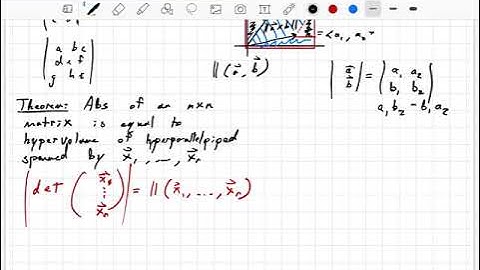 a b c
d e f
g h i
|| (a⃗, b⃗)
= <a₁, a₂>
| a⃗ b⃗ | = | a₁ a₂ b₁ b₂ |
a₁ b₂ - b₁ a₂
Theorem: Abs of an nxn
matrix is equal to
hypervolume of hyperparallelpiped
spanned by x⃗₁, ..., x⃗ₙ
| det ( x⃗₁ ⋮ x⃗ₙ ) | = || (x⃗₁, ..., x⃗ₙ)